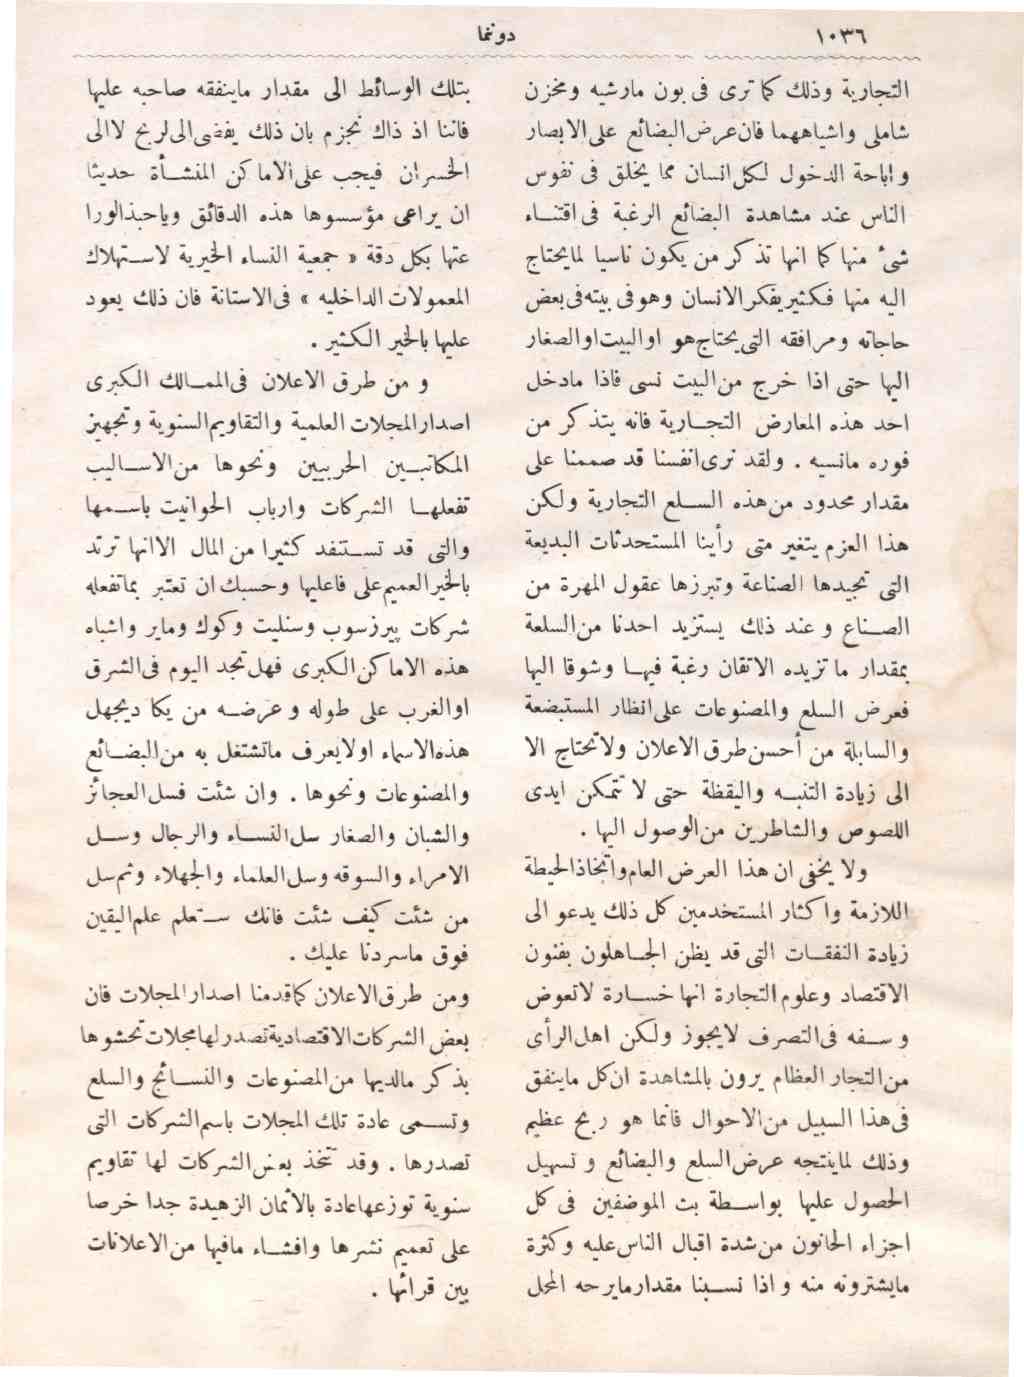 ١٠٣٦
دوننما
التجارية وذلك كما ترى فى بون مارشيه ومخزن
شاملى واشباههما فان عرض البضائع على الابصار
واباحة الدخول لكل انسان مما يخلق فى نفوس
الناس عند مشاهدة البضائع الرغبة فى اقتنـاء
شئ منها كما انها تذكر من يكون ناسيا لما يحتاج
اليه منها فكثير يفكر الانسان وهو فى بيته فى بعض
حاجاته ومرافقه التى يحتاج هو او البيت او الصغار
اليها حتى اذا خرج من البيت نسى فاذا مادخل
احد هذه المعارض التجـارية فانه يتذكر من
فوره مانسيه . ولقد نرى انفسنا قد صممنا على
مقدار محدود من هذه السـلع التجارية ولكن
هذا العزم يتغير متى رأينا المستحدثات البديعة
التى تجيدها الصناعة وتبرزها عقول المهرة من
الصـناع وعند ذلك يستزيد احدنا من السلعة
بمقدار ماتزيده الاتقان رغبة فيهـا وشوقا اليها
فعرض السلع والمصنوعات على انظار المستبضعة
والسابلة من أحسن طرق الاعلان ولا تحتاج الا
الى زيادة التنبـه واليقظة حتى لا تتمكن ايدى
اللصوص والشاطرين من الوصول اليها .
ولا يخفى ان هذا العرض العام واتخاذ الحيطة
اللازمة واكثار المستخدمين كل ذلك يدعو الى
زيادة النفقـات التى قد يظن الجـاهلون بفنون
الاقتصاد وعلوم التجارة انها خسـارة لاتعوض
وسـفه فى التصرف لايجوز ولكن اهل الرأى
من التجار العظام يرون بالمشاهدة ان كل ماينفق
فى هذا السبيل من الاحوال فانما هو ربح عظيم
وذلك لماينتجه عرض السلع والبضائع وتسهيل
الحصول عليها بواسـطة بث الموضفين فى كل
اجزاء الحانون من شدة اقبال الناس عليه وكثرة
مايشترونه منه واذا نسـبنا مقدار مايرحه المحل
بتلك الوسائط الى مقدار ماينفقه صاحبه عليها
فاننا اذ ذاك نجزم بان ذلك يفضى الى لربح لا الى
الخسران فيجب على الاماكن المنشـأة حديثا
ان يراعى مؤسسوها هذه الدقائق وياحبذا لورا
عتها بكل دقة « جمعية النساء الخيرية لاسـتهلاك
المعمولات الداخليه » فى الاستانة فان ذلك يعود
عليها بالخير الكثير .
و من طرق الاعلان فى الممـالك الكبرى
اصدار المجلات العلمية والتقاويم السنوية وتجهيز
المكاتبـين الحربيين ونحوها من الاسـاليب
تفعلهـا الشركات وارباب الحوانيت باسـمها
والتى قد تسـتنفد كثيرا من المال الا انها ترتد
بالخير العميم على فاعليها وحسبك ان تعتبر بماتفعله
شركات پيرزسوب وسنليت وكوك وماير واشباه
هذه الاماكن الكبرى فهل تجد اليوم فى الشرق
او الغرب على طوله وعرضـه من يكاد يجهل
هذه الاسماء اولايعرف ماتشتغل به من البضـائع
والمصنوعات ونحوها . وان شئت فسل العجائز
والشبان والصغار سل النسـاء والرجال وسـل
الامراء والسوقه وسل العلماء والجهلاء وثم سل
من شئت كيف شئت فانك سـتعلم علم اليقين
فوق ماسردنا عليك .
ومن طرق الاعلان كما قدمنا اصدار المجلات فان
بعض الشركات الاقتصادية تصدر لها مجلات تحشوها
بذكر مالديها من المصنوعات والنسـائج والسلع
وتسـمى عادة تلك المجلات باسم الشركات التى
تصدرها . وقد تتخذ بعض الشركات لها تقاويم
سنوية توزعها عادة بالأثمان الزهيدة جدا خرصا
على تعميم نشرها وافشـاء مافيها من الاعلانات
بين قرائها .